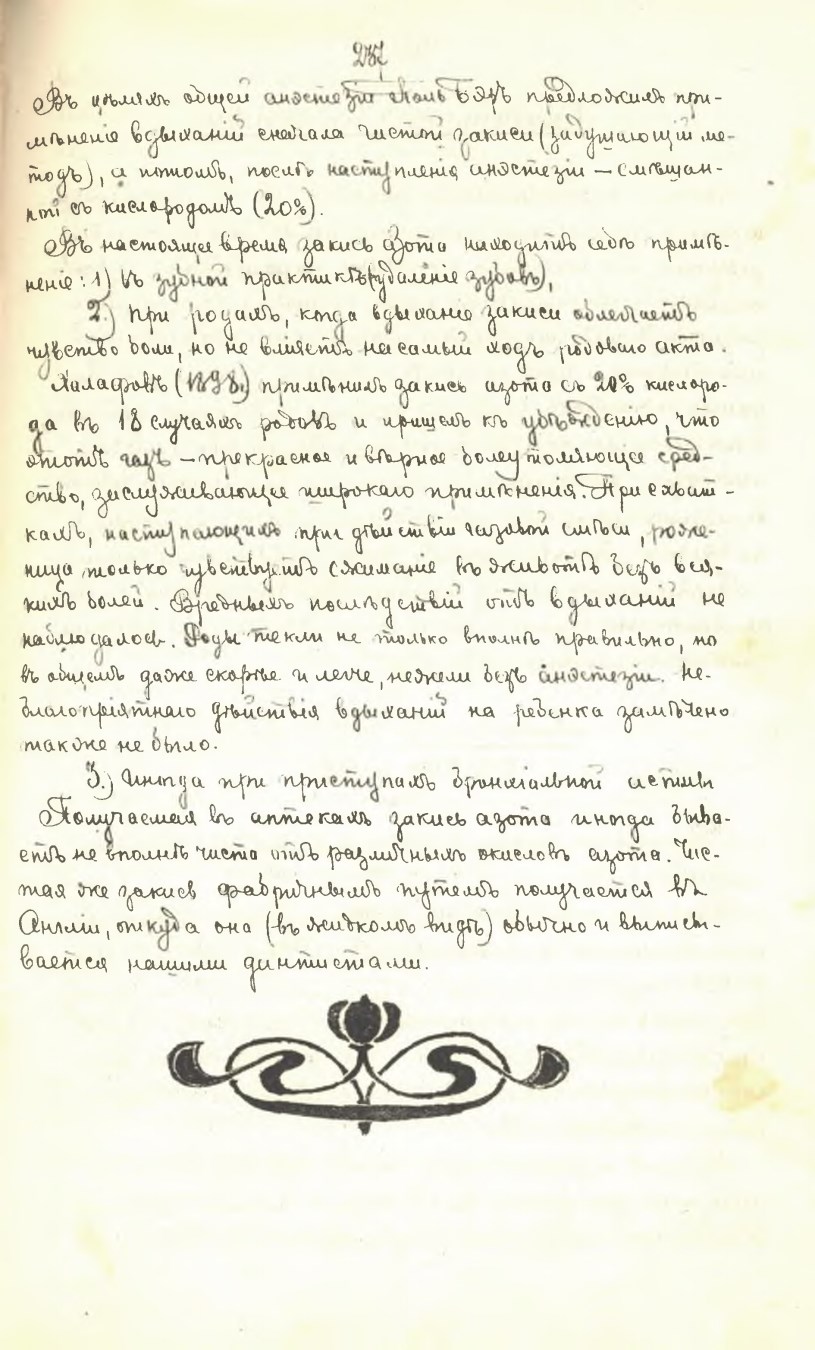 237
Въ цѣляхъ общей анэстезіи Поль Бэръ предложилъ при-
мѣненіе вдыханій сначала чистой закиси (задушающій ме-
тодъ), а потомъ, послѣ наступленія анэстезіи — смѣшан-
ной съ кислородомъ (20%).
Въ настоящее время закись азота находитъ себѣ примѣ-
неніе: 1) въ зубной практикѣ (удаленіе зубовъ),
2.) при родахъ, когда вдыханіе закиси облегчаетъ
чувство боли, но не вліяетъ на самый ходъ родоваго акта.
Халафовъ (1898.) примѣнилъ закись азота съ 20% кислоро-
да въ 18 случаяхъ родовъ и пришелъ къ убѣжденію, что
этотъ газъ — прекрасное и вѣрное болеутоляющее сред-
ство, заслуживающее широкаго примѣненія. При схват-
кахъ, наступающихъ при дѣйствіи газовой смѣси, роже-
ница только чувствуетъ сжиманіе въ животѣ безъ вся-
кихъ болей. Вредныхъ послѣдствій отъ вдыханій не
наблюдалось. Роды текли не только вполнѣ правильно, но
въ общемъ даже скорѣе и легче, нежели безъ анэстезіи. Не-
благопріятнаго дѣйствія вдыханій на ребенка замѣчено
также не было.
3.) Иногда при приступахъ бронхіальной астмы
Получаемая въ аптекахъ закись азота иногда быва-
етъ не вполнѣ чиста отъ различныхъ окисловъ азота. Чис-
тая же закись фабричнымъ путемъ получается въ
Англіи, откуда она (въ жидкомъ видѣ) обычно и выписы-
вается нашими дантистами.